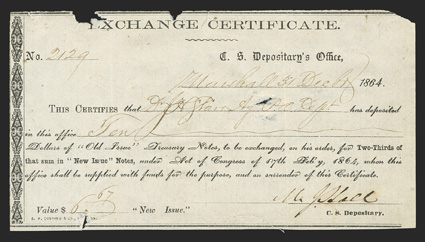 EXCHANGE CERTIFICATE.
No. 2129 C. S. Depositary's Office,
Marshall 31 Decbr 1864.
THIS CERTIFIES that has deposited
in this office Ten
Dollars of "Old Issue" Treasury Notes, to be exchanged, on his order, for Two-Thirds of
that sum in "New Issue" Notes, under Act of Congress of 17th Feb'y, 1864, when this
office shall be supplied with funds for the purpose, and on surrender of this Certificate.
Value $ 6.67 "New Issue."
C. S. Depositary.